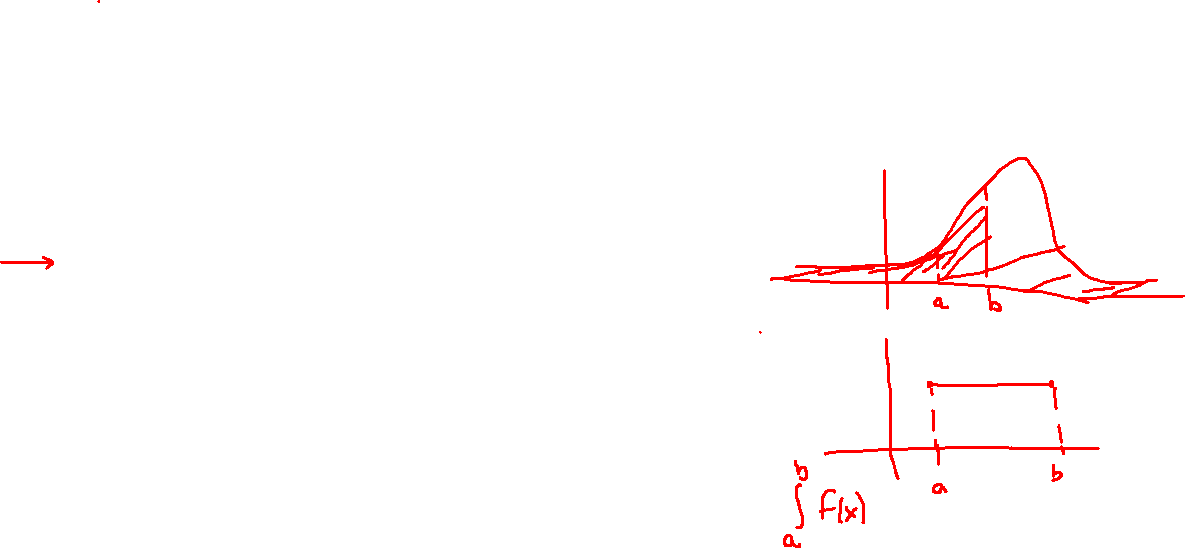 a b
a b
∫ₐᵇ f(x)